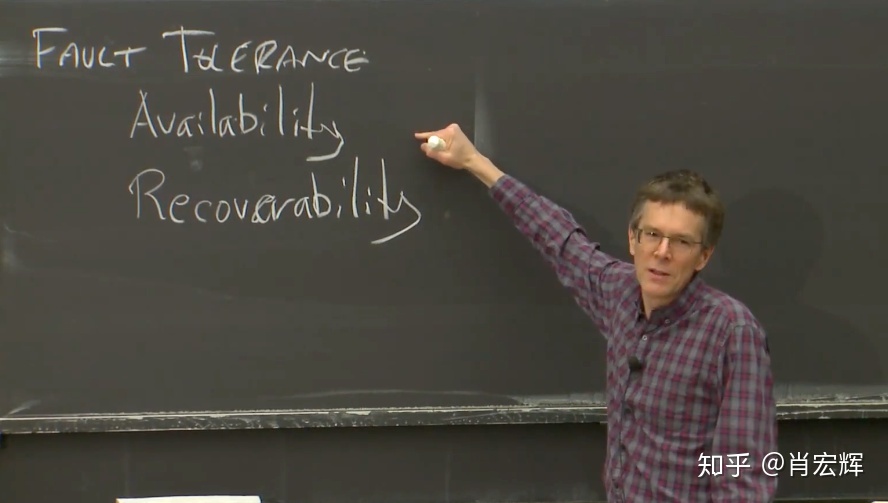 FAULT TOLERANCE
Availability
Recoverability
知乎 @肖宏辉